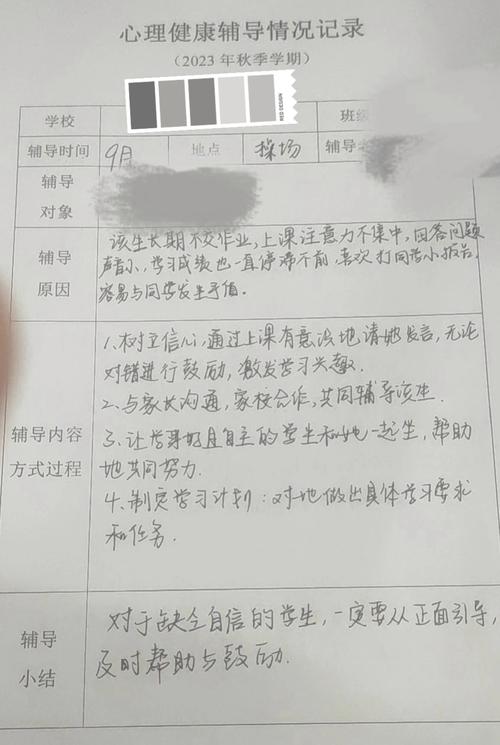 心理健康辅导情况记录
（2023年秋季学期）
学校 班级
辅导时间 9月 地点 操场 辅导
辅导
对象
辅导
原因
该生长期不交作业，上课注意力不集中，回答问题
声音小，学习成绩也一直停滞不前，喜欢打同学小报告，
容易与同学发生争值。
辅导内容
方式过程
1、树立信心，通过上课有意识地请她发言，无论
对错进行鼓励，激发学习兴趣．
2、与家长沟通，家校合作，共同辅导该生．
3、让学习好且自主的学生和她一起坐，帮助
她共同努力．
4、制定学习计划：对她做出具体学习要求
和任务．
辅导
小结
对于缺乏自信的学生，一定要从正面引导，
及时帮助与鼓励．